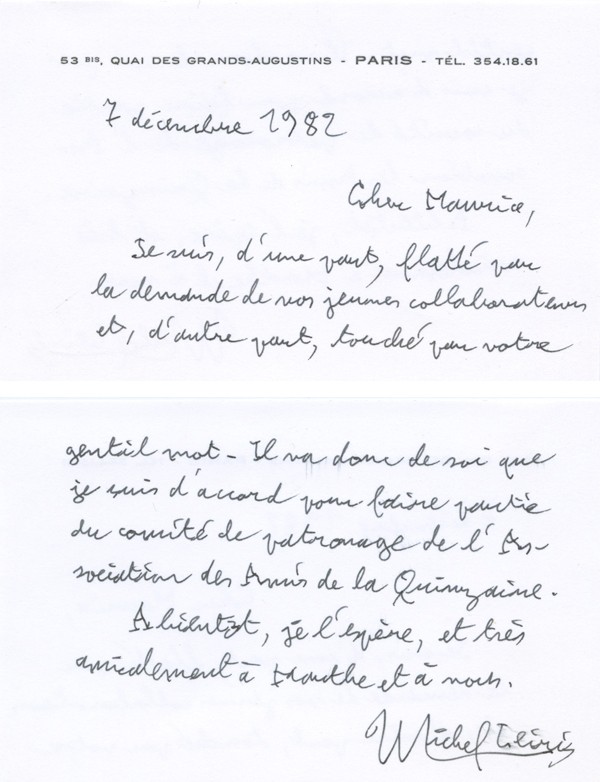 53 BIS, QUAI DES GRANDS-AUGUSTINS - PARIS - TÉL. 354.18.61
7 décembre 1982
Cher Maurice,
Je suis, d'une part, flatté par
la demande de vos jeunes collaborateurs
et, d'autre part, touché par votre
gentil mot - Il va donc de soi que
je suis d'accord pour faire partie
du comité de patronage de l'As-
sociation des Amis de la Quinzaine.
A bientôt, je l'espère, et très
amicalement à Marthe et à vous.
Michel Leiris